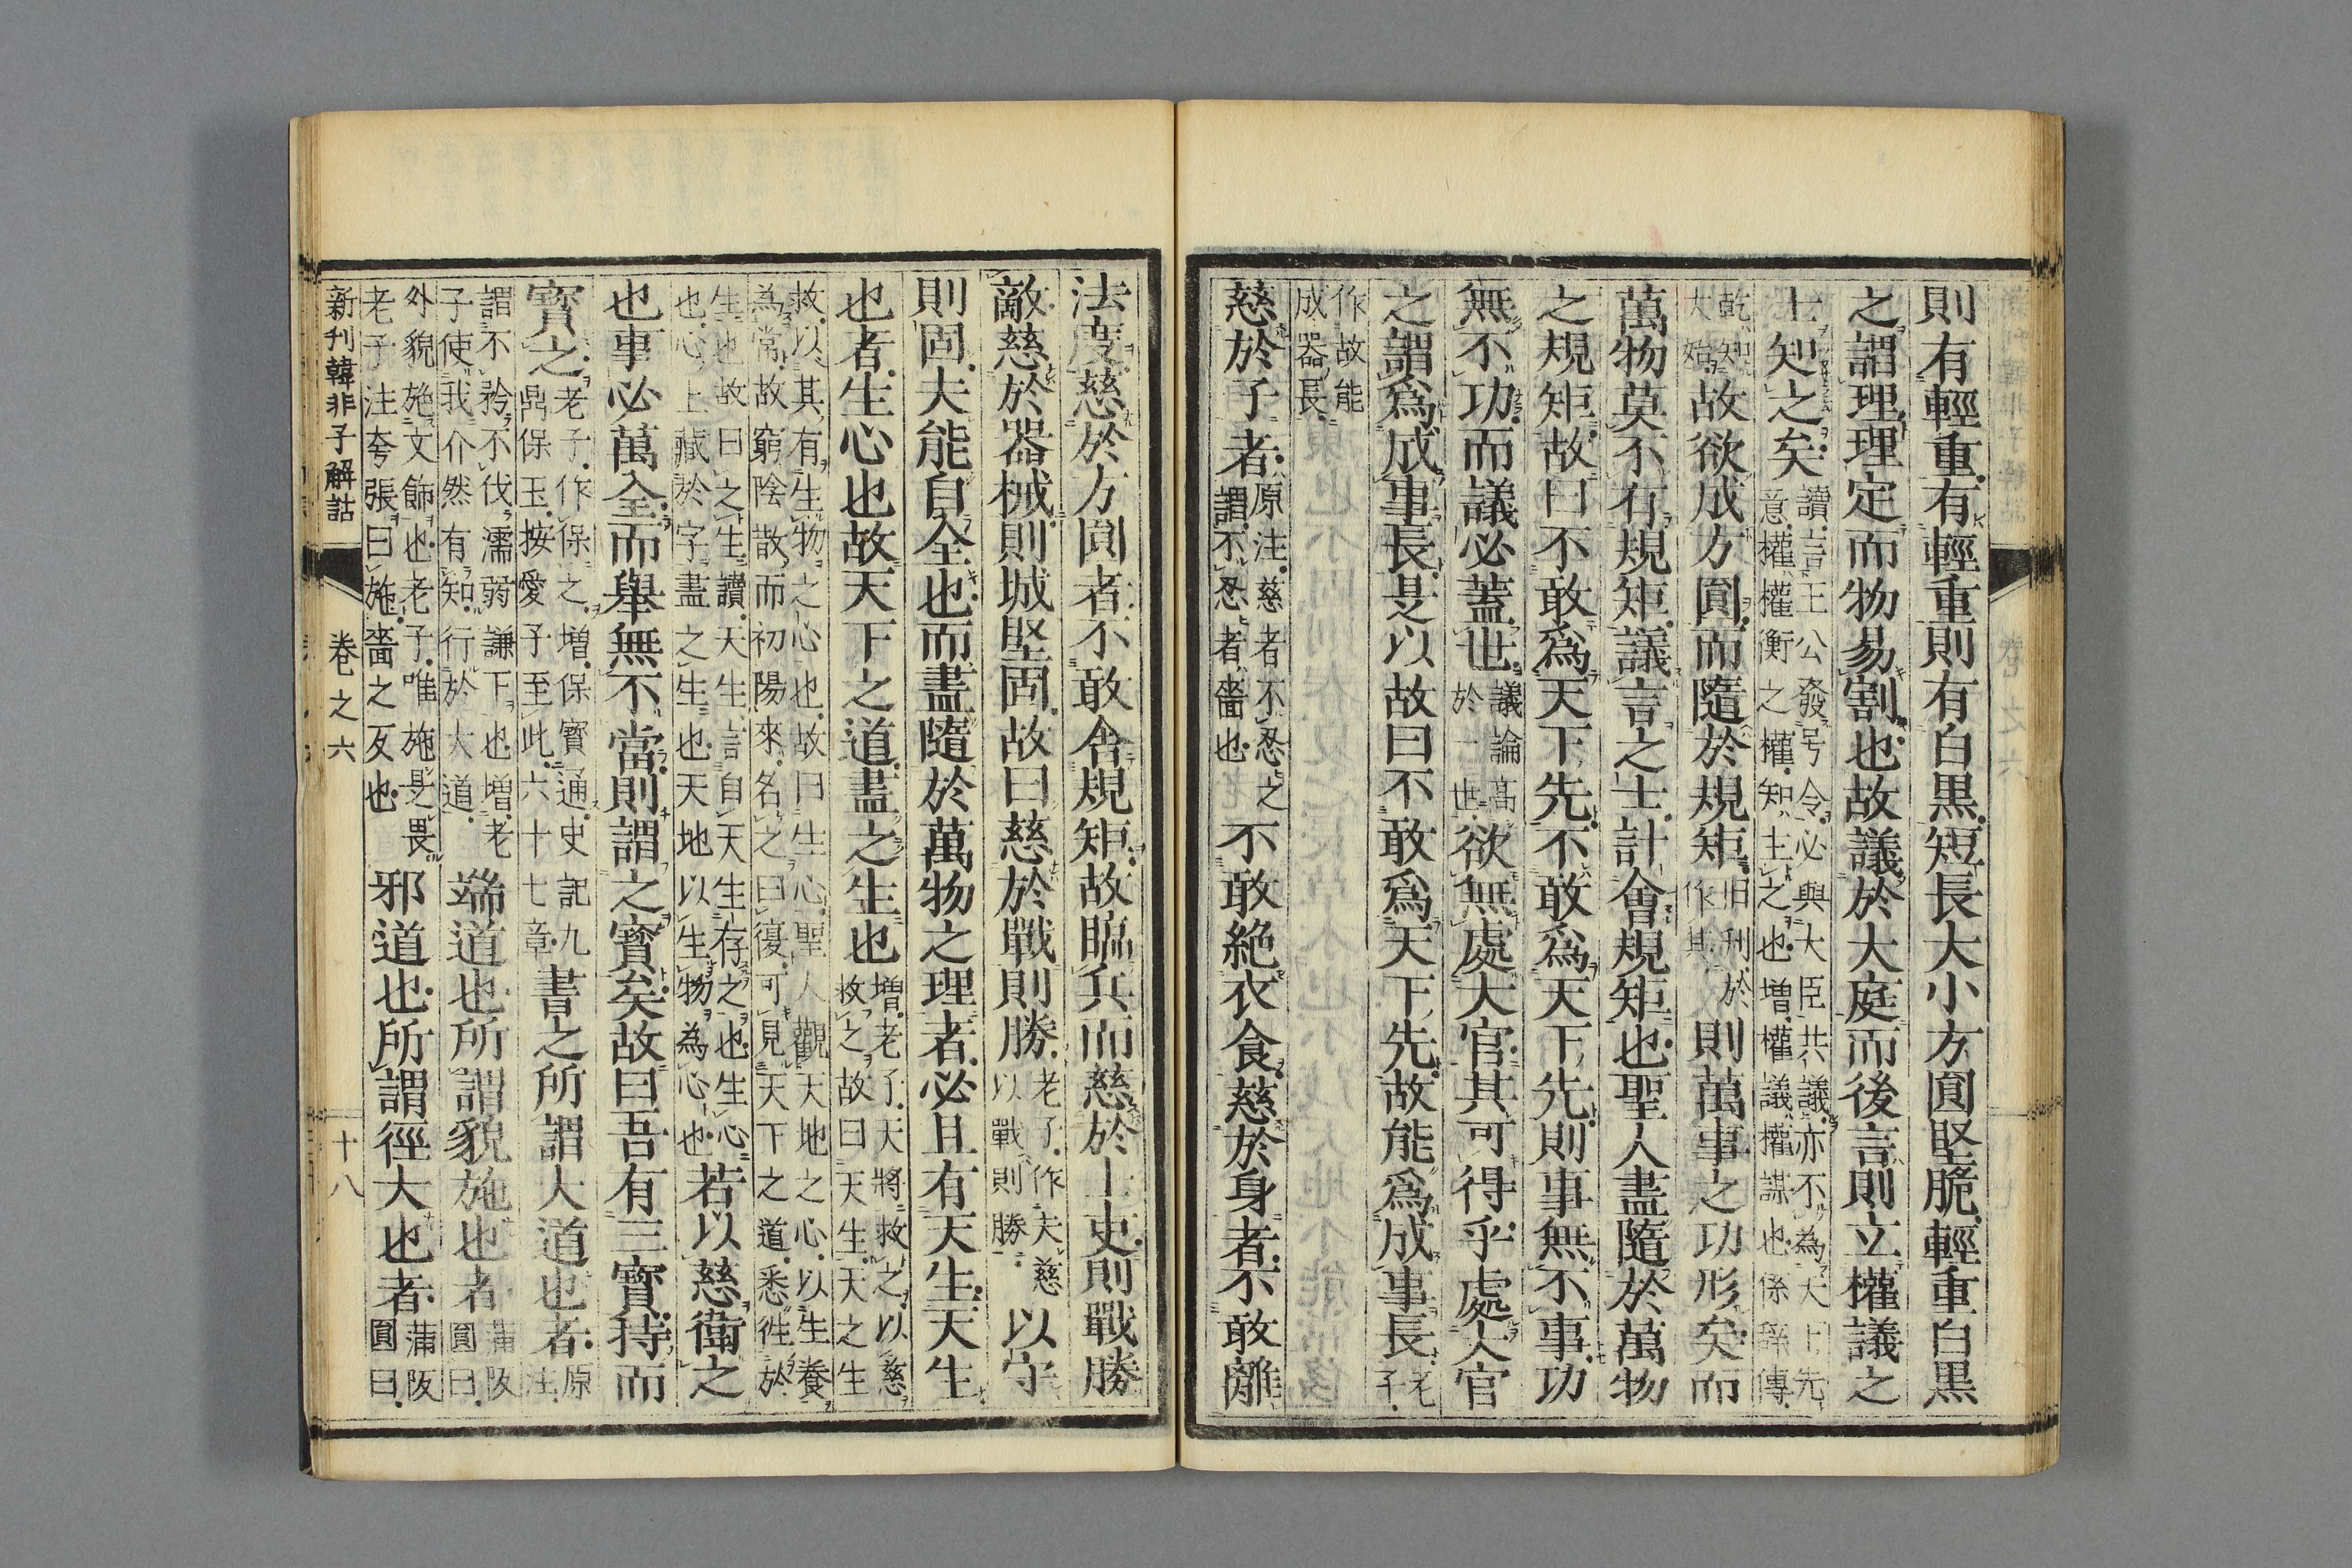 則有輕重有輕重則有白黒短長大小方圓堅脆輕重白黒
之謂理理定而物易割也故議於大庭而後言則立權議之
士知之矣讀言王公發号令必與大臣共議亦不為天下先
意權權衡之權知主之也増權議權謀也係辞傳
乾知
大始故欲成方圓而隨於規矩旧刊於
作其則萬事之功形矣而
萬物莫不有規矩議言之士計會規矩也聖人盡隨於萬物
之規矩故曰不敢爲天下先不敢爲天下先則事無不事功
無不功而議必蓋世議論髙
於一世欲無處大官其可得乎處大官
之謂爲成事長是以故曰不敢爲天下先故能爲成事長老
子
作故能
成器長
慈於子者原注慈者不忍之
謂不忍者嗇也不敢絶衣食慈於身者不敢離
法度慈於方圓者不敢舍規矩故臨兵而慈於士吏則戰勝
敵慈於器械則城堅固故曰慈於戰則勝老子作夫慈
以戰則勝以守
則固夫能自全也而盡隨於萬物之理者必且有天生天生
也者生心也故天下之道盡之生也増老子天將救之以慈
救之故曰天生天之生
救以其有生物之心也故曰生心聖人觀天地之心以生養
為常故窮陰散而初陽來名之曰復可見天下之道悉徃於
生也故曰之生讀天生言自天生存之也生心
也心上藏於字盡之生也天地以生物為心也若以慈衛之
也事必萬全而舉無不當則謂之寳矣故曰吾有三寳持而
寳之老子作保之増保寳通史記九
鼎保玉按愛子至此六十七章書之所謂大道也者原
注
謂不矜不伐濡弱謙下也増老
子使我介然有知行於大道端道也所謂貌施也者蒲阪
圓曰
外貌施文飾也老子唯施是畏
老子注夸張曰施嗇之反也邪道也所謂徑大也者蒲阪
圓曰
新刊韓非子解詁 卷之六 十八